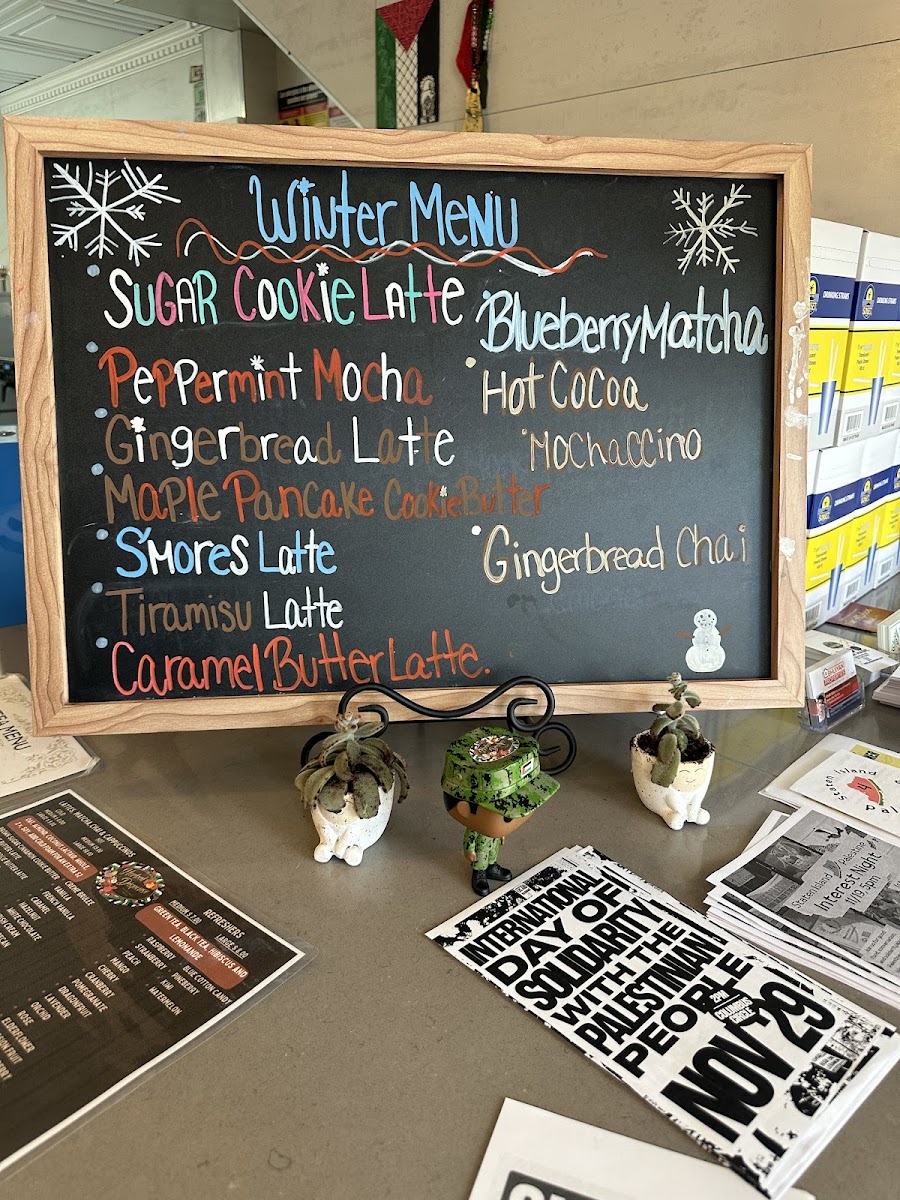 Winter Menu
Sugar Cookie Latte
Peppermint Mocha
Gingerbread Latte
Maple Pancake Cookie Butter
S'mores Latte
Tiramisu Latte
Caramel Butter Latte.
Blueberry Matcha
Hot Cocoa
Mochaccino
Gingerbread Chai
DRINKING STRAWS
MENU
LATTES, MATCHA, CHAI & CAPPUCCINOS
CREME BRULEE
FRENCH VANILLA
VANILLA
CARAMEL
HAZELNUT
WHITE CHOCOLATE
REFRESHERS
GREEN TEA, BLACK TEA, HIBISCUS AND
LEMONADE
RASPBERRY
STRAWBERRY
PEACH
MANGO
CHERRY
CRANBERRY
BLUE COTTON CANDY
PINEBERRY
KIWI
WATERMELON
POMEGRANATE
DRAGONFRUIT
LAVENDER
ORCHID
ROSE
ELDERFLOWER
INTERNATIONAL
DAY OF
SOLIDARITY
WITH THE
PALESTINIAN
PEOPLE
2PM
COLUMBUS
CIRCLE
NOV 29
Staten Island
Palestine
Interest Night
11/19 5pm
Staten Island